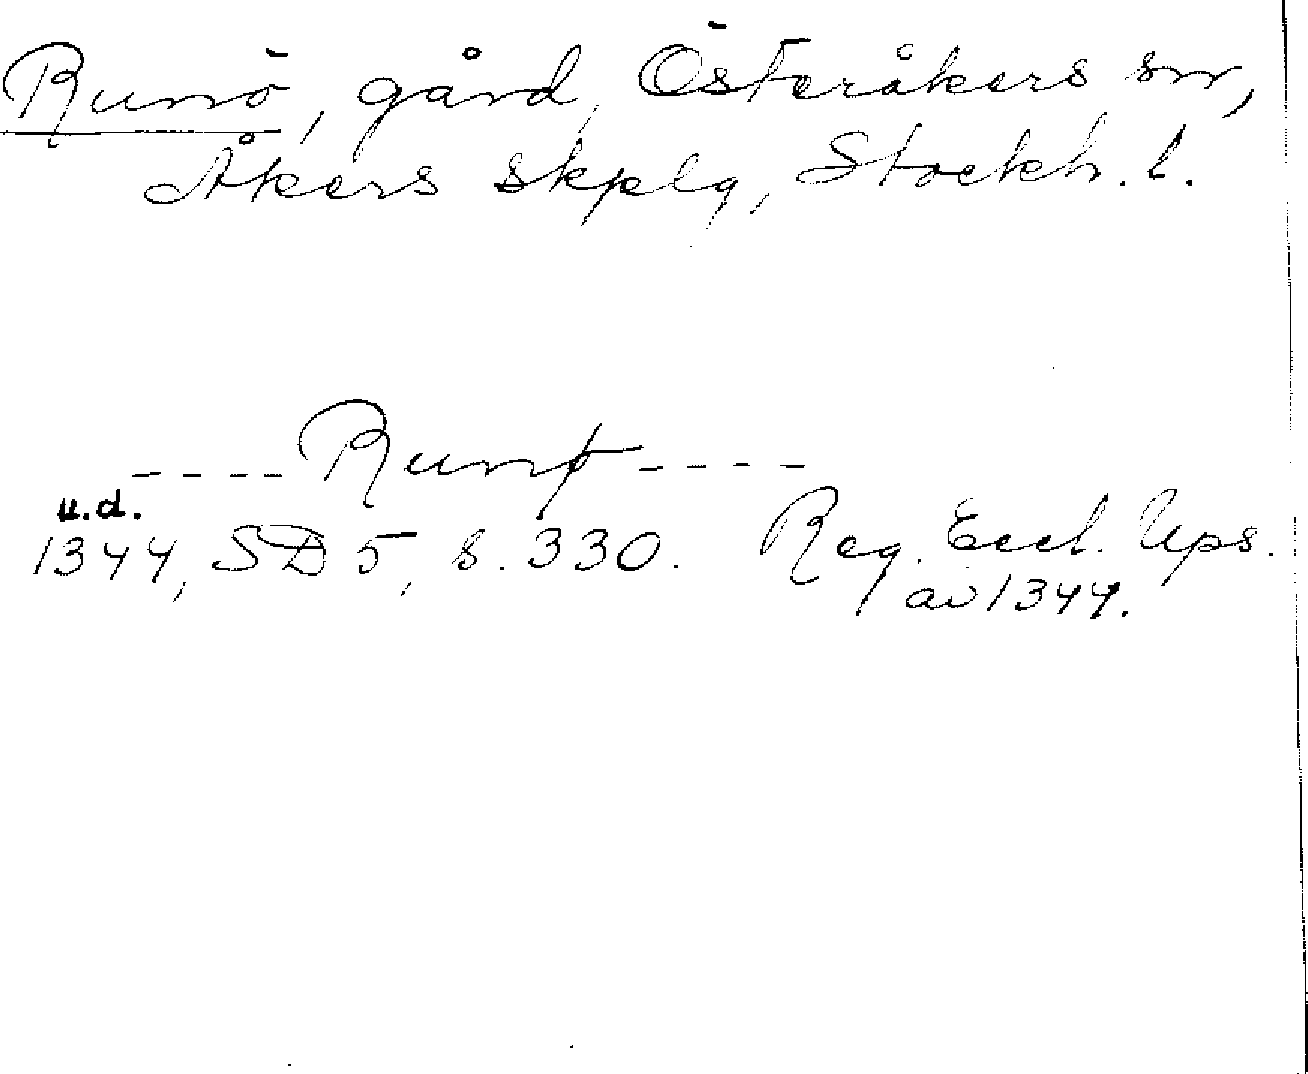 Runö, gård, Österåkers sn,
Åkers skplg, Stockh. l.
---- Runø ----
u.d.
1344, SD 5, s. 330. Reg. Eccl. Ups.
av 1344.